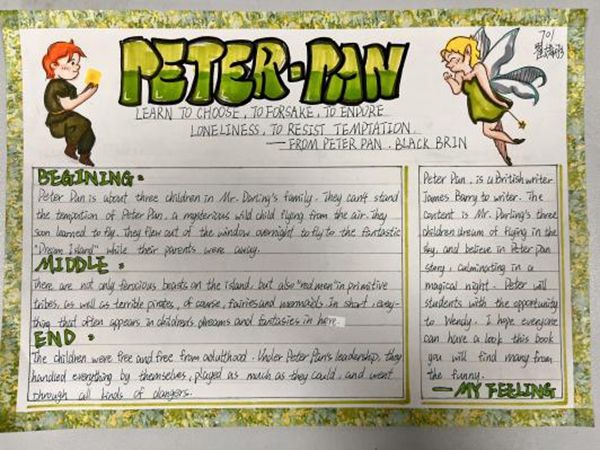 PETER-PAN
701
LEARN TO CHOOSE, TO FORSAKE, TO ENDURE
LONELINESS, TO RESIST TEMPTATION.
——FROM PETER PAN. BLACK BRIN
BEGINING:
Peter Pan is about three children in Mr. Darling's family. They can't stand
the tempation of Peter Pan, a mysterious wild child flying from the air. They
soon learned to fly. They flew out of the window overnight to fly to the fantastic
"Dream Island" while their parents were away.
MIDDLE:
There are not only ferocious beasts on the island, but also "red men" in primitive
tribes, as well as terrible pirates, of course, fairies and mermaids. In short, every-
thing that often appears in children's dreams and fantasies in here.
END:
The children were free and free from adulthood. Under Peter Pan's leadership, they
handled everything by themselves, played as much as they could, and went
through all kinds of dangers.
Peter Pan, is a British writer
James Barry to writer. The
content is Mr. Darling's three
children dream of flying in the
sky, and believe in Peter pan
story, culminating in a
magical night. Peter will
students with the opportunity
to Wendy. I hope everyone
can have a look this book
you will find many from
the funny.
—MY FEELING